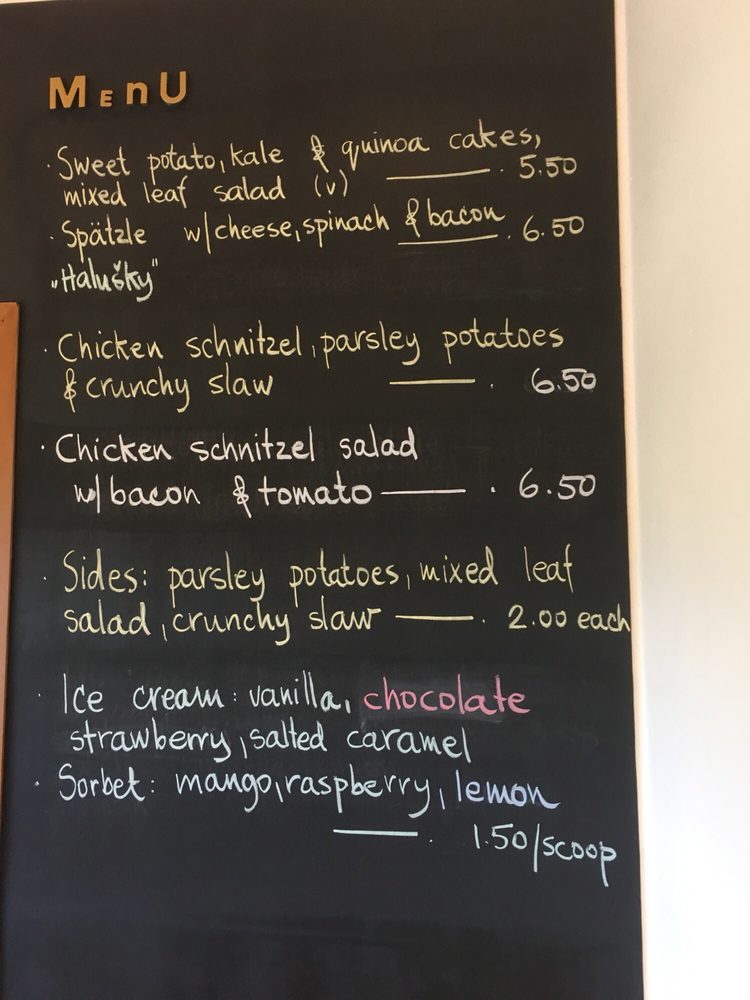 MEnU
· Sweet potato, kale & quinoa cakes,
mixed leaf salad (v) —— . 5.50
· Spätzle w/cheese, spinach & bacon —— . 6.50
„Halušky"
· Chicken schnitzel, parsley potatoes
& crunchy slaw —— . 6.50
· Chicken schnitzel salad
w/bacon & tomato —— . 6.50
· Sides: parsley potatoes, mixed leaf
salad, crunchy slaw —— . 2.00 each
· Ice cream: vanilla, chocolate
strawberry, salted caramel
· Sorbet: mango, raspberry, lemon
—— . 1.50/scoop